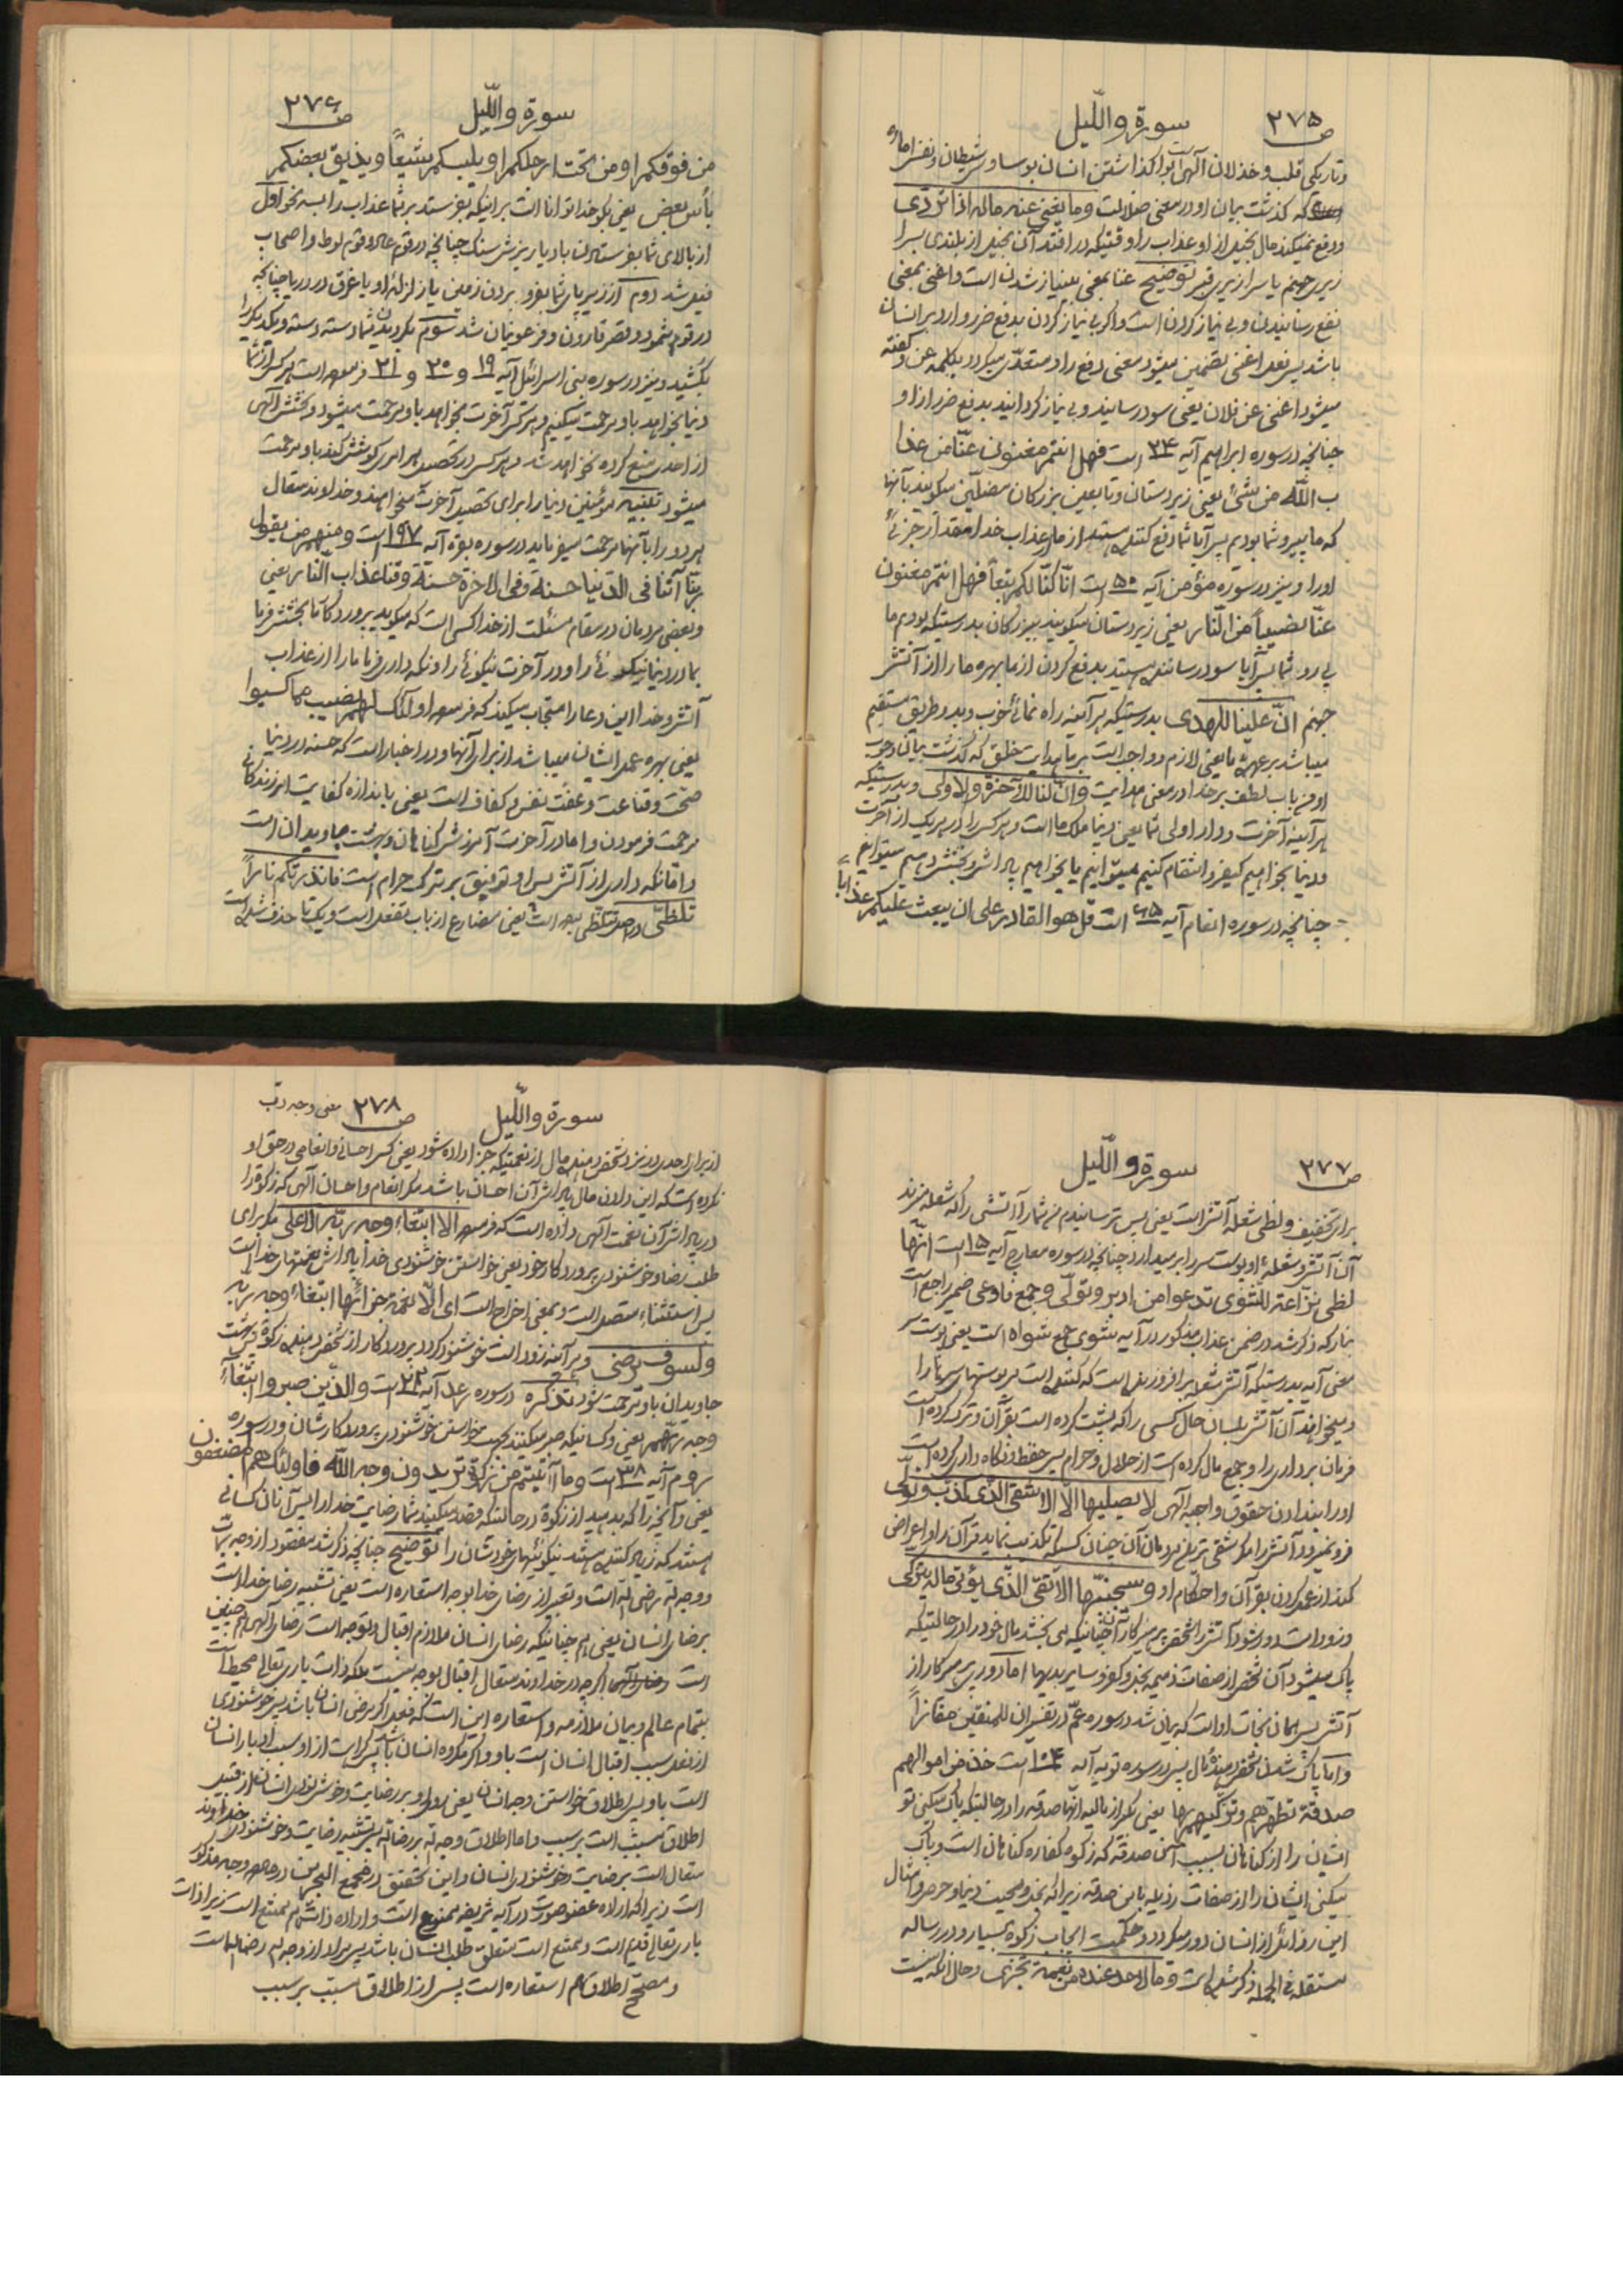 ص ۲۷۵
سورة واللّیل
وتاریکی قلب وخذلان آلهی است بواگذاشتن انسان بوساوس شیطان ونفس اماره
که گذشت بیان او در معنی ضلالت وما یغنی عنه ماله اذا تردّی
ودفع نمیکند مال بخیل از او عذاب را وقتیکه در افتد آن بخیل از بلندی بسرا
زیری جهنم یا سرازیری قبر توضیح غنا بمعنی بینیاز شدن است واغنی بمعنی
نفع رسانیدن وبی نیاز کردن است واگر بی نیاز کردن بدفع ضرر وارد بر انسان
باشد پس فعل اغنی تضمین میشود معنی دفع را ومتعدّی میگردد بکلمه عن وگفته
میشود اغنی عن فلان یعنی سود رسانید وبی نیاز گردانید بدفع ضرر از او
چنانچه در سوره ابراهیم آیه ۲۴ است فهل انتم مغنون عنّا من عذا
ب اللّه من شئ یعنی زیردستان وتابعین بزرگان مضلّین میگویند بآنها
که ما پیرو شما بودیم پس آیا شما دفع کننده هستید از ما از عذاب خدا مقدار جزئی
اورا ونیز در سوره مؤمن آیه ۵۰ است انّا کنّا لکم تبعاً فهل انتم مغنون
عنّا نصیباً من النّار یعنی زیردستان میگویند ببزرگان بدرستیکه بودیم ما
پی رو شما پس آیا سود رساننده هستید بدفع کردن از ما بهره ما را از آتش
جهنم انّ علینا للهدی بدرستیکه هر آینه راه نمائی خوب وبد وطریق مستقیم
میباشد بر عهده ما یعنی لازم وواجب است بر ما هدایت خلق که گذشت بیان وجوب
او من باب لطف بر خدا در معنی هدایت وانّ لنا للآخرة والاولی وبدرستیکه
هر آینه آخرت ودار اولی شما یعنی دنیا ملک ما است وهر کس را در هر یک از آخرت
ودنیا بخواهیم کیفر وانتقام کنیم میتوانیم یا بخواهیم پاداش وبخشش دهیم میتوانیم
چنانچه در سوره انعام آیه ۶۵ است قل هو القادر علی ان یبعث علیکم عذاباً
ص ۲۷۶
سورة واللّیل
من فوقکم او من تحت ارجلکم او یلبسکم شیعاً ویذیق بعضکم
بأس بعض یعنی بگو خدا توانا است بر اینکه بفرستد بر شما عذاب را بسه نحو اول
از بالای شما بفرستادن باد یا ریزش سنگ چنانچه در قوم عاد وقوم لوط واصحاب
فیل شد دوم از زیر پای شما بفرو بردن زمین یا زلزله او یا غرق در دریا چنانچه
در قوم ثمود وقصر قارون وفرعونیان شد سوم بگردیدن شما دسته دسته ویکدیگر را
بکشید ونیز در سوره بنی اسرائل آیه ۱۹ و ۲۰ و ۲۱ فرموده است هر کس از شما
دنیا بخواهد باو مرحمت میکنیم وهر کس آخرت بخواهد باو مرحمت میشود وبخشش آلهی
از احدی منع کرده نخواهد شد وهر کس در تحصیل هر امری کوشش کند باو مرحمت
میشود تنبیه مؤمنین دنیا را برای تحصیل آخرت میخواهند وخداوند متعال
هر دو را بآنها مرحمت میفرماید در سوره بقره آیه ۱۹۷ است ومنهم من یقول
ربّنا آتنا فی الدّنیا حسنة وفی الاخرة حسنة وقنا عذاب النّار یعنی
وبعضی مردمان در مقام مسئلت از خدا کسی است که میگوید پروردگارا بخشش فرما
بما در دنیا نیکوئی را ودر آخرت نیکوئی را ونگهداری فرما ما را از عذاب
آتش وخدا این دعا را مستجاب میکند که فرموده اولئک لهم نصیب مما کسبوا
یعنی بهره عمل ایشان میباشد از برای آنها ودر اخبار است که حسنه در دنیا
صحّت وقناعت وعفّت نفس وکفاف است یعنی باندازه کفایت امر زندگانی
مرحمت فرمودن واما در آخرت آمرزش گناهان وبهشت جاویدان است
واما نگهداری از آتش پس او توفیق بر ترک حرام است فانذرتکم ناراً
تلظّی در اصل تتلظّی بوده است یعنی مضارع از باب تفعل است ویک تا حذف شده است
ص ۲۷۷
سورة واللّیل
برای تخفیف ولظی شعله آتش است یعنی پس ترسانیدم من شما را آتشی را که شعله میزند
آن آتش وشعله او پوست سر را برمیدارد چنانچه در سوره معارج آیه ۱۵ است انّها
لظی نزّاعة للشوی تدعوا من ادبر وتولّی وجمع فاوعی ضمیر راجع است
بنار که ذکر شد در ضمن عذاب مذکور در آیه شوی جمع شواه است یعنی پوست سر
معنی آیه بدرستیکه آتش شعله برافروزنده است که کننده است مر پوستهای سرها را
ومیخواند آن آتش بلسان حال کسی را که پشت کرده است بقرآن وترک کرده است
فرمان برداری را وجمع مال کرده است از حلال وحرام پس حفظ ونگاهداری کرده است
اورا بندادن حقوق واجبه آلهی لا یصلیها الّا الاشقی الّذی کذّب وتولّی
فرو نمیرود آتش را مگر شقی ترین مردمان آن چنان کسیکه تکذیب نماید قرآن را واعراض
کند از عمل کردن بقرآن واحکام او وسیجنّبها الاتقی الّذی یؤتی ماله یتزکّی
وزود است دور شود آتش را شخص پرهیزکار آن چنانیکه می بخشد مال خود را در حالتیکه
پاک میشود آن شخص از صفات ذمیمه بخل وکفر وسایر بدیها اما دوری پرهیزکار از
آتش پس همان نجات او است که بیان شد در سوره عمّ در تفسیر ان للمتقین مفازاً
واما پاک شدن شخص دهنده مال پس در سوره توبه آیه ۱۰۴ است خذ من اموالهم
صدقة تطهّرهم وتزکّیهم بها یعنی بگیر از مالیه آنها صدقه را در حالتیکه پاک میکنی تو
ایشان را از گناهان بسبب همین صدقه که زکوة کفاره گناهان است وپاک
میکنی ایشان را از صفات رذیله باین صدقه زیرا که بخل ومحبت دنیا وحرص وامثال
این رذائل از انسان دور میگردد وحکمت ایجاب زکوة بسیار ودر رساله
مستقله فی الجمله ذکر شده است وما لاحد عنده من نعمة تجزی وحال آنکه نیست
ص ۲۷۸
معنی وجه رب
سورة واللّیل
از برای احدی در نزد شخص دهنده مال از نعمتیکه جزا داده شود یعنی کسی احسانی وانعامی در حق او
نکرده است که این دادن مال پاداش آن احسان باشد مگر انعام واحسان آلهی که زکوة را
در پاداش آن نعمت آلهی داده است که فرموده الا ابتغاء وجه ربّه الاعلی مگر برای
طلب رضا وخوشنودی پروردگار خود یعنی خواستن خوشنودی خدا پاداش نعمتهای خدا است
پس استثناء متصل است وبمعنی اخراج است ای الّا نعمة جزائها ابتغاء وجه ربّه
ولسوف یرضی وهر آینه زود است خوشنود گردد پروردگار از شخص دهنده زکوة که بهشت
جاویدان باو مرحمت شود تذکره در سوره رعد آیه ۲۲ است والذین صبروا ابتغاء
وجه ربّهم یعنی وکسانیکه صبر میکنند بجهت خواستن خوشنودی پروردگارشان ودر سوره
روم آیه ۳۸ است وما آتیتم من زکوة تریدون وجه اللّه فاولئک هم المضعفون
یعنی وآنچه را که بدهید از زکوة در حالتیکه قصد میکنید شما رضایت خدا را پس آنان کسانی
هستند که زیاد کننده هستند نیکوئیهای خودشان را توضیح چنانچه ذکر شد مقصود از وجه ربّ
ووجه اللّه رضی اللّه است وتعبیر از رضای خدا بوجه استعاره است یعنی تشبیه رضای خدا است
برضای انسان یعنی هم چنانیکه رضای انسان ملازم اقبال وتوجه است رضای آلهی هم چنین
است اگرچه در خداوند متعال اقبال بوجه نیست بلکه ذات باری تعالی محیط است
بتمام عالم وبیان ملازمه واستعاره این است که فعل اگر مرضی انسان باشد پس خوشنودی
از فعل سبب اقبال انسان است باو واگر مکروه انسان باشد پس کراهت از او سبب ادبار انسان
است باو پس اطلاق خواستن وجه انسان یعنی روی او بر رضایت وخوشنودی انسان از قبیل
اطلاق مسبّب است بر سبب واما اطلاق وجه اللّه بر رضا اللّه پس تشبیه رضایت وخوشنودی خداوند
متعال است برضایت وخوشنودی انسان واین تحقیق در مجمع البحرین در وجه مذکور
است زیرا که اراده عضو صورت در آیه شریفه ممتنع است واراده ذات هم ممتنع است زیرا ذات
باری تعالی قدیم است وممتنع است متعلق طلب انسان باشد پس مراد از وجه هم رضا اللّه است
ومصحّح اطلاق هم استعاره است پس از اطلاق مسبّب بر سبب